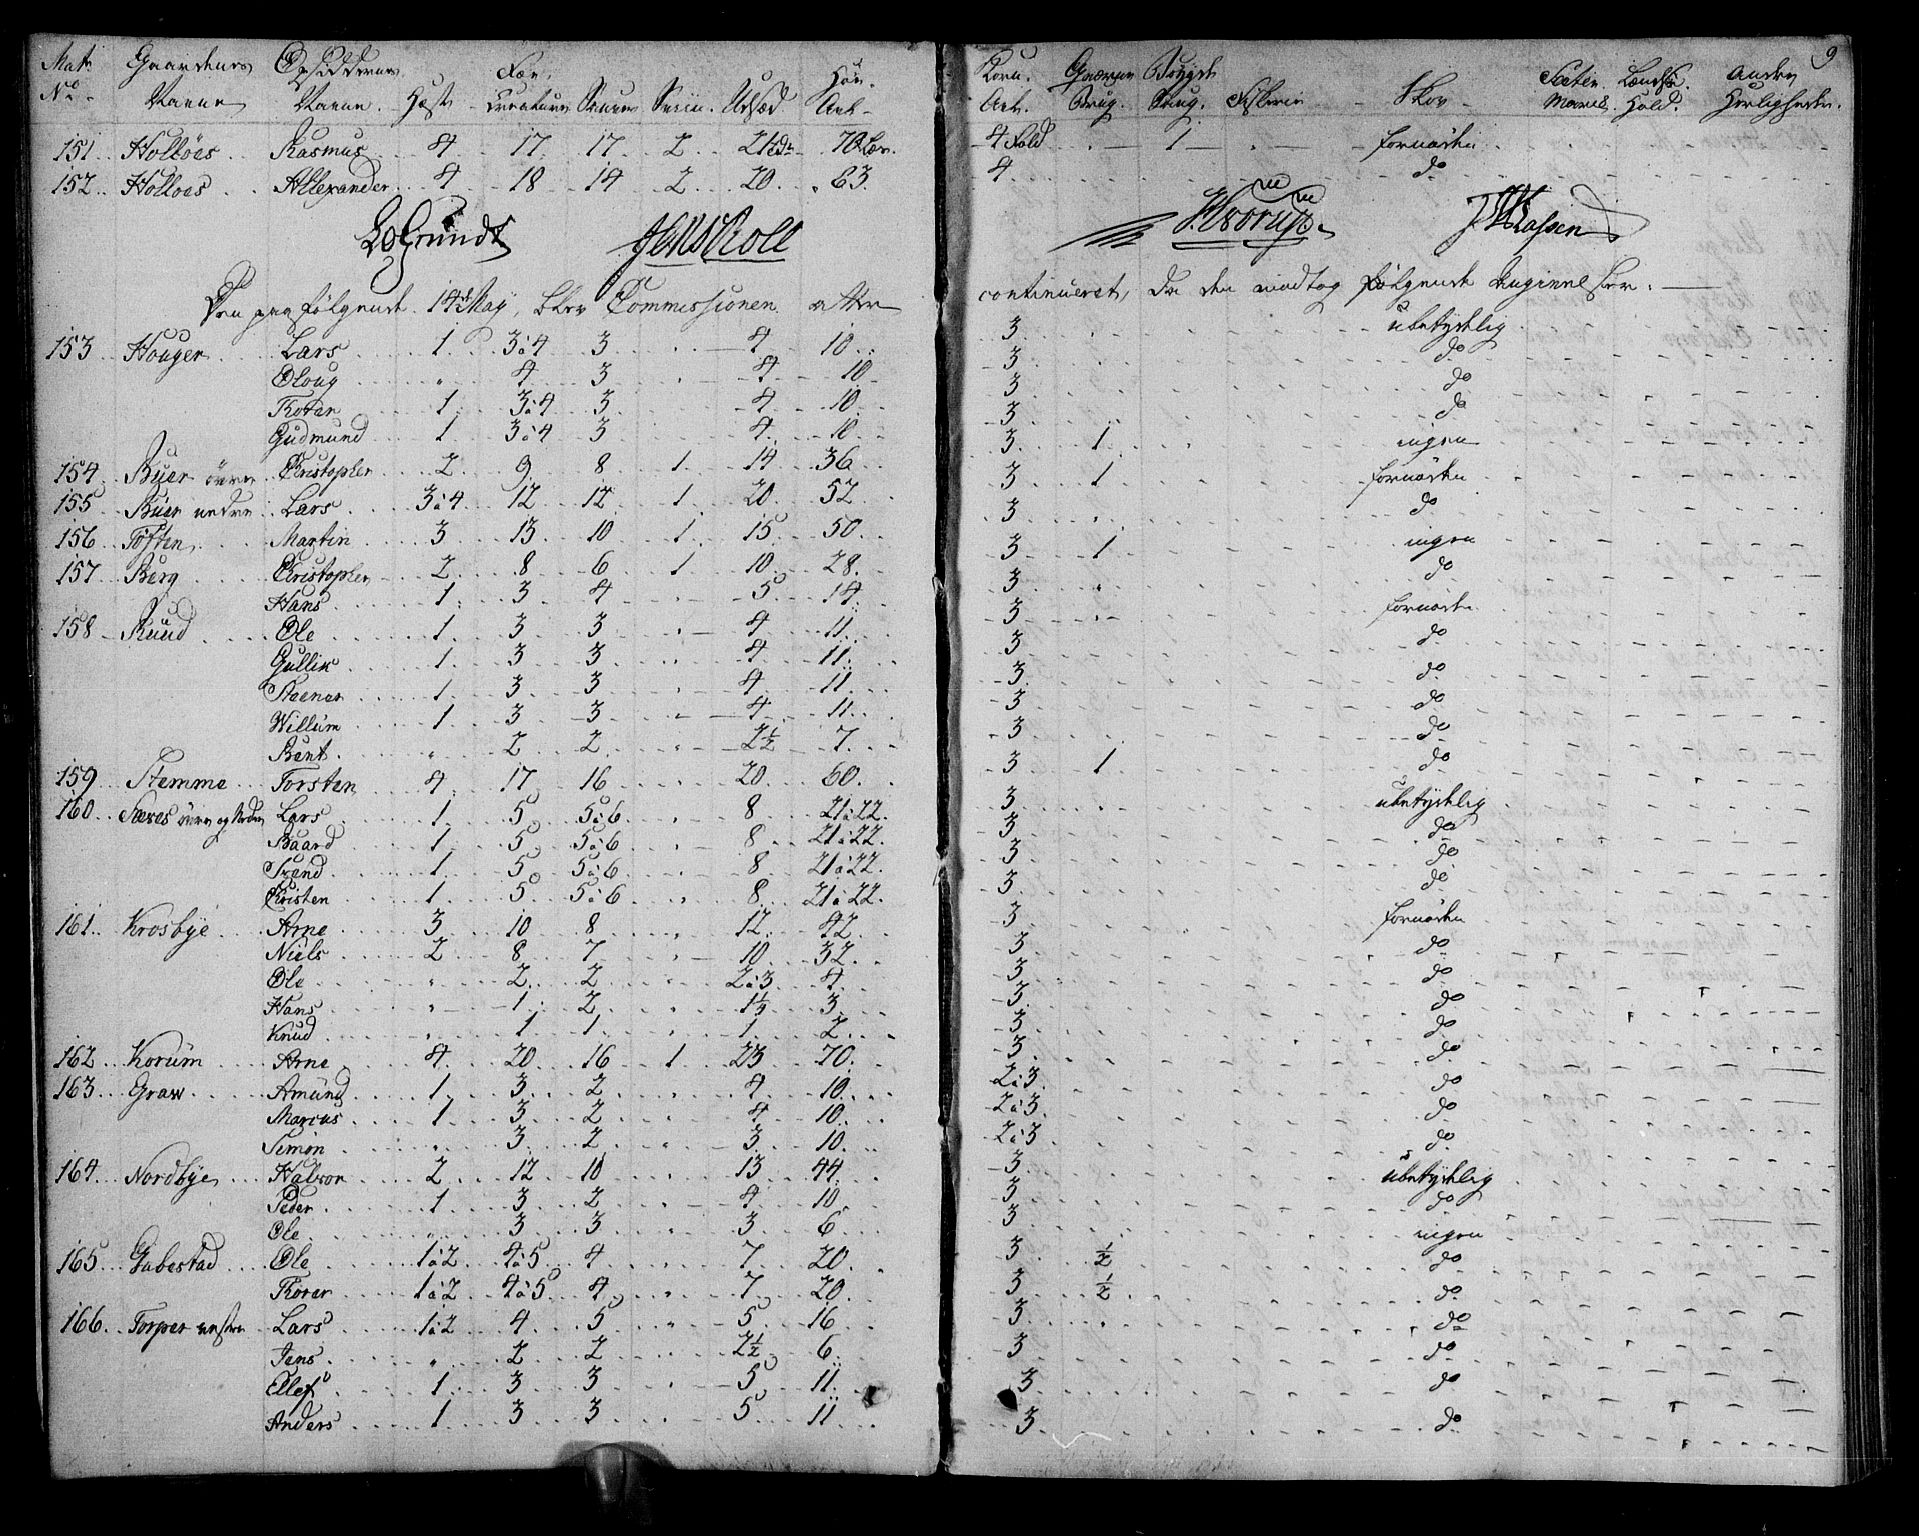 9
Mat: Gaardenes Opsiddernes Fæe- Høe- Korn- Qværne Bøyde Sæter Lændsk: Andre
No. Navne Navne. Hæste Creature Souer Sviin. Udsæd Avl- Avl. Brug. Brug. Fiskerie Skov Hold. Herligheder.
151 Holloes Rasmus 4 17 17 2 21 70 Læs. 4 Fold 1 fornøden
152 Holloes Allexander 4 18 14 2 20 63 4 do
Lo Grundt Jens Roll
Den paafølgende 14de May, blev Commissionen atter continueret, da den modtog følgende
153 Houger Lars 1 3 à 4 3 4 10 3 ubetydelig
Oloug 4 3 4 10 3 do
Torer 1 3 à 4 3 4 10 3 do
Gudmund 1 3 à 4 3 4 10 3 do
154 Buer øvre Christopher 2 9 8 1 14 36 3 1 ingen
155 Buer nedre Lars 3 à 4 12 12 1 20 52 3 1 fornøden
156 Toften Martin 3 13 10 1 15 50 3 do
157 Berg Christopher 2 8 6 1 10 28 3 1 ingen
Hans 1 3 4 5 14 3 do
158 Ruud Ole 1 3 3 4 11 3 fornøden
Gullik 1 3 3 4 11 3 do
Steener 1 3 3 4 11 3 do
Willum 1 3 3 4 11 3 do
Bent 2 2 2½ 7 3 do
159 Stemme Torsten 4 17 16 20 60 3 1 do
160 Næres øvre og Nedre Lars 1 5 5 à 6 8 21 à 22 3 ubetydelig
Baard 1 5 5 à 6 8 21 à 22 3 do
Trand 1 5 5 à 6 8 21 à 22 3 do
Christen 1 5 5 à 6 8 21 à 22 3 do
161 Krosbye Arne 3 10 8 12 42 3 fornøden
Niels 2 8 7 10 32 3 do
Ole 2 2 2 à 3 4 3 do
Hans 1 2 3 3 do
Knud 1 1 1 2 3 do
162 Korum Arne 4 20 16 1 23 70 3 do
163 Graw Amund 1 3 2 4 10 2 à 3 do
Marcus 1 3 2 4 10 2 à 3 do
Simon 3 2 3 10 2 à 3 do
164 Nordbye Halvor 2 12 10 13 44 3 ubetydelig
Peder 1 3 2 4 10 3 do
Ole 3 3 3 6 3 ingen
165 Gabestad Ole 1 à 2 4 à 5 4 7 20 3 ½ do
Torer 1 à 2 4 à 5 4 7 20 3 ½ do
166 Torper Lars 1 à 2 4 5 5 16 3 do
Jens 2 2 2½ 6 3 do
Ellef 1 3 3 5 11 3 do
Anders 1 3 3 5 11 3 do